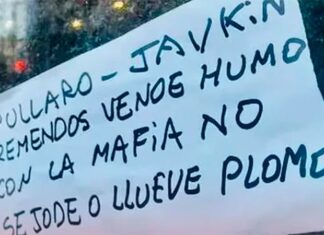 PULLARO - JAVKIN
REMENDOS VENDE HUMO
CON LA MAFIA NO
SE JODE O LLUEVE PLOMO